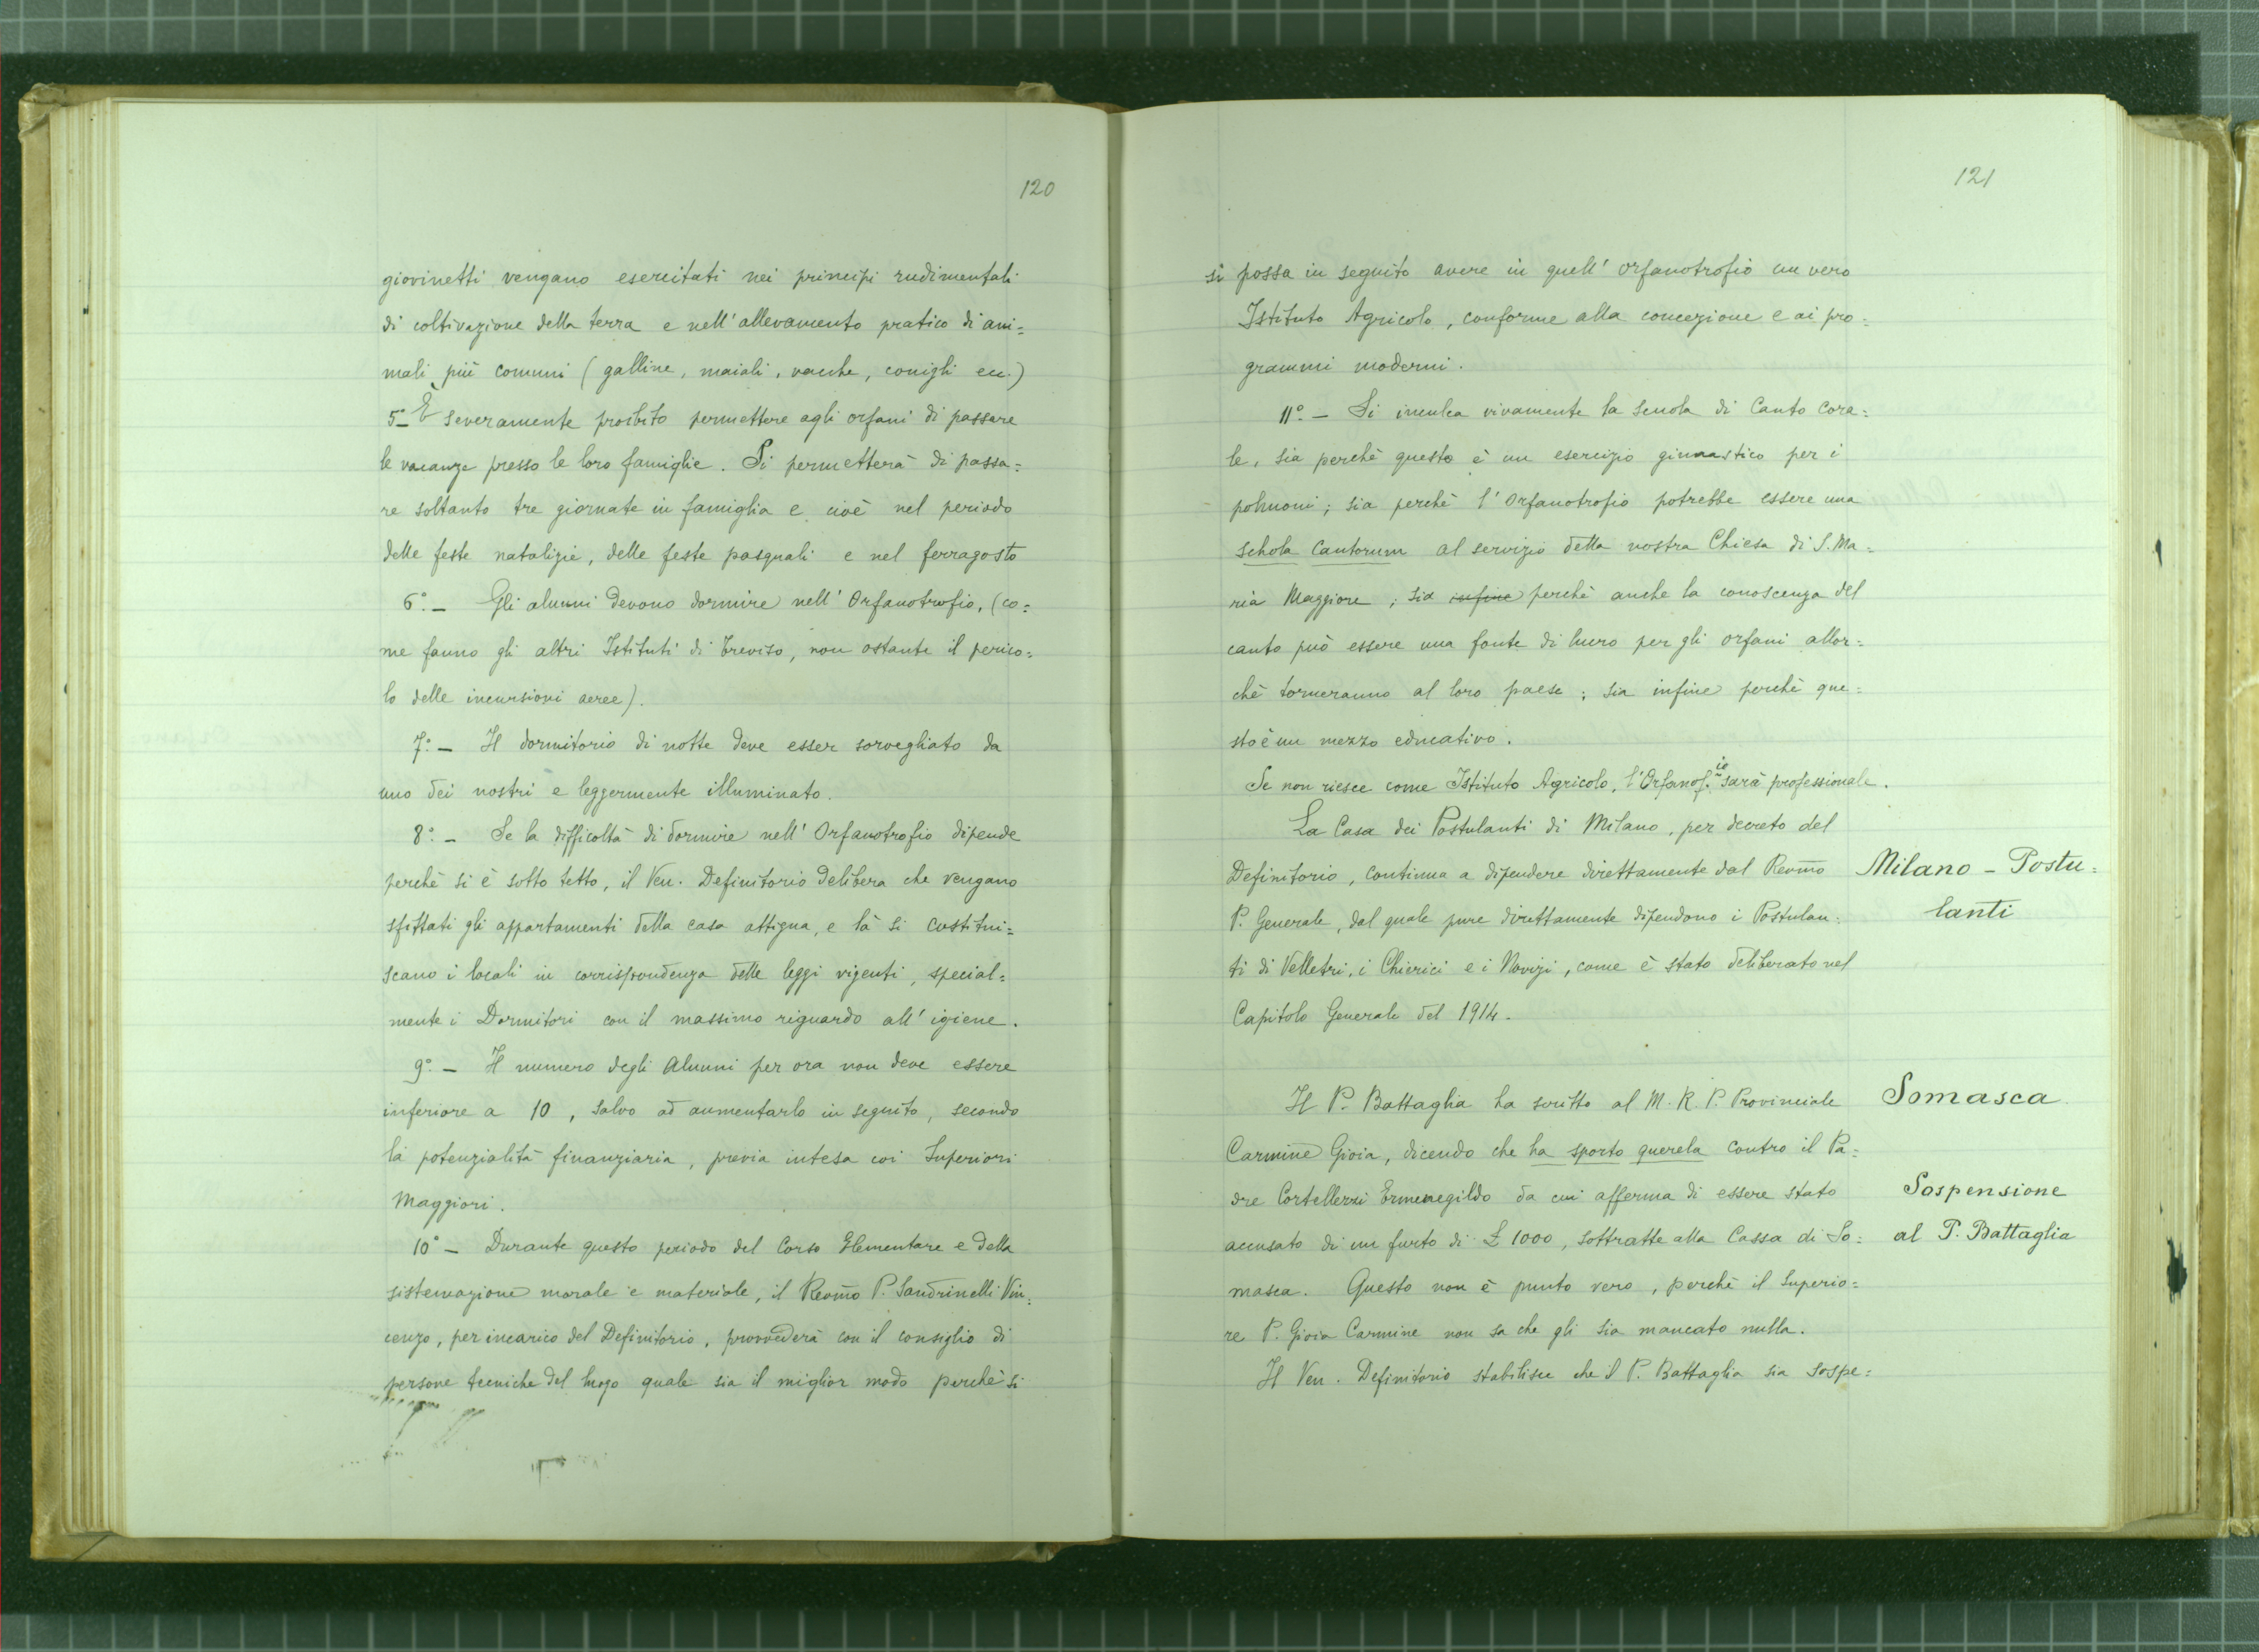 120
giovinetti vengano esercitati nei principi rudimentali
di coltivazione della terra e nell'allevamento pratico di ani=
mali più comuni (galline, maiali, vacche, conigli ecc.)
5° È severamente proibito permettere agli orfani di passare
le vacanze presso le loro famiglie. Si permetterà di passa=
re soltanto tre giornate in famiglia e cioè nel periodo
delle feste natalizie, delle feste pasquali e nel ferragosto
6°. — Gli alunni devono dormire nell'Orfanotrofio, (co=
me fanno gli altri Istituti di Treviso, non ostante il perico=
lo delle incursioni aeree).
7°. — Il dormitorio di notte deve esser sorvegliato da
uno dei nostri e leggermente illuminato.
8°. — Se la difficoltà di dormire nell'Orfanotrofio dipende
perchè si è sotto tetto, il Ven. Definitorio delibera che vengano
sfittati gli appartamenti della casa attigua, e là si costitui=
scano i locali in corrispondenza delle leggi vigenti, special=
mente i Dormitori con il massimo riguardo all'igiene.
9°. — Il numero degli Alunni per ora non deve essere
inferiore a 10, salvo ad aumentarlo in seguito, secondo
la potenzialità finanziaria, previa intesa coi Superiori
Maggiori.
10° — Durante questo periodo del Corso Elementare e della
sistemazione morale e materiale, il Revmo P. Sandrinelli Vin=
cenzo, per incarico del Definitorio, provvederà con il consiglio di
persone tecniche del luogo quale sia il miglior modo perchè si
121
si possa in seguito avere in quell'orfanotrofio un vero
Istituto Agricolo, conforme alla concezione e ai pro=
grammi moderni.
11°. — Si inculca vivamente la scuola di Canto Cora=
le, sia perchè questo è un esercizio ginnastico per i
polmoni; sia perchè l'Orfanotrofio potrebbe essere una
schola Cantorum al servizio della nostra Chiesa di S. Ma=
ria Maggiore; sia infine perchè anche la conoscenza del
canto può essere una fonte di lucro per gli orfani allor=
chè torneranno al loro paese; sia infine perchè que=
sto è un mezzo educativo.
Se non riesce come Istituto Agricolo, l'Orfanof.io sarà professionale.
La Casa dei Postulanti di Milano, per decreto del
Definitorio, continua a dipendere direttamente dal Revmo
P. Generale, dal quale pure direttamente dipendono i Postulan=
ti di Velletri, i Chierici e i Novizi, come è stato deliberato nel
Capitolo Generale del 1914.
Milano – Postu=
lanti
Il P. Battaglia ha scritto al M. R. P. Provinciale
Carmine Gioia, dicendo che ha sporto querela contro il Pa=
dre Cortellezzi Ermenegildo da cui afferma di essere stato
accusato di un furto di £ 1000, sottratte alla Cassa di So=
masca. Questo non è punto vero, perchè il Superio=
re P. Gioia Carmine non sa che gli sia mancato nulla.
Il Ven. Definitorio stabilisce che il P. Battaglia sia sospe=
Somasca
Sospensione
al P. Battaglia